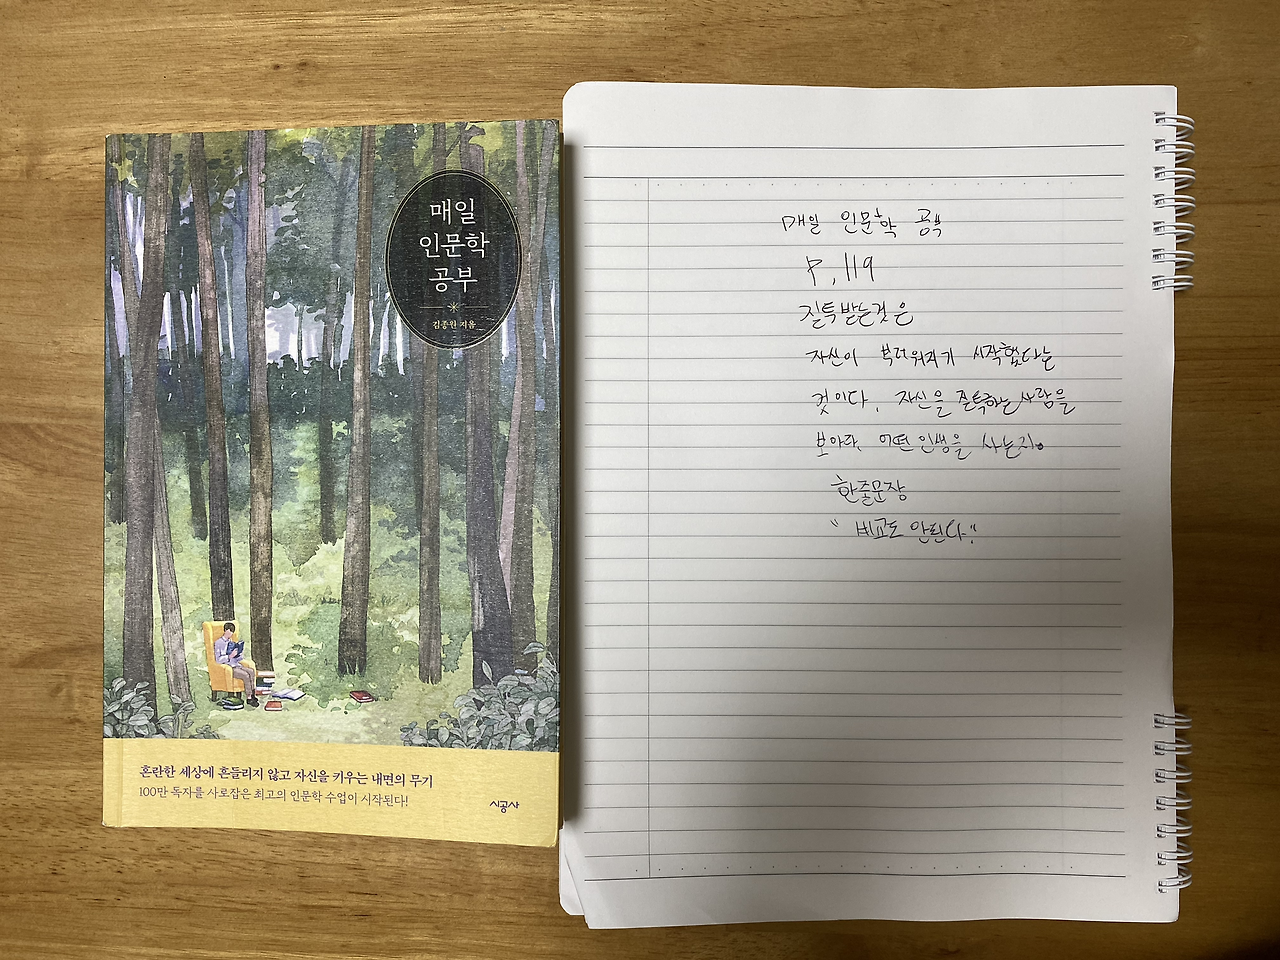 매일
인문학
공부
김종원 지음
혼란한 세상에 흔들리지 않고 자신을 키우는 내면의 무기
100만 독자를 사로잡은 최고의 인문학 수업이 시작된다!
시공사
매일 인문학 공부
P. 119
질투받는것은
자신이 부러워지기 시작했다는
것이다. 자신을 질투하는 사람을
보아라. 어떤 인생을 사는지.
한줄문장
"비교도 안된다."